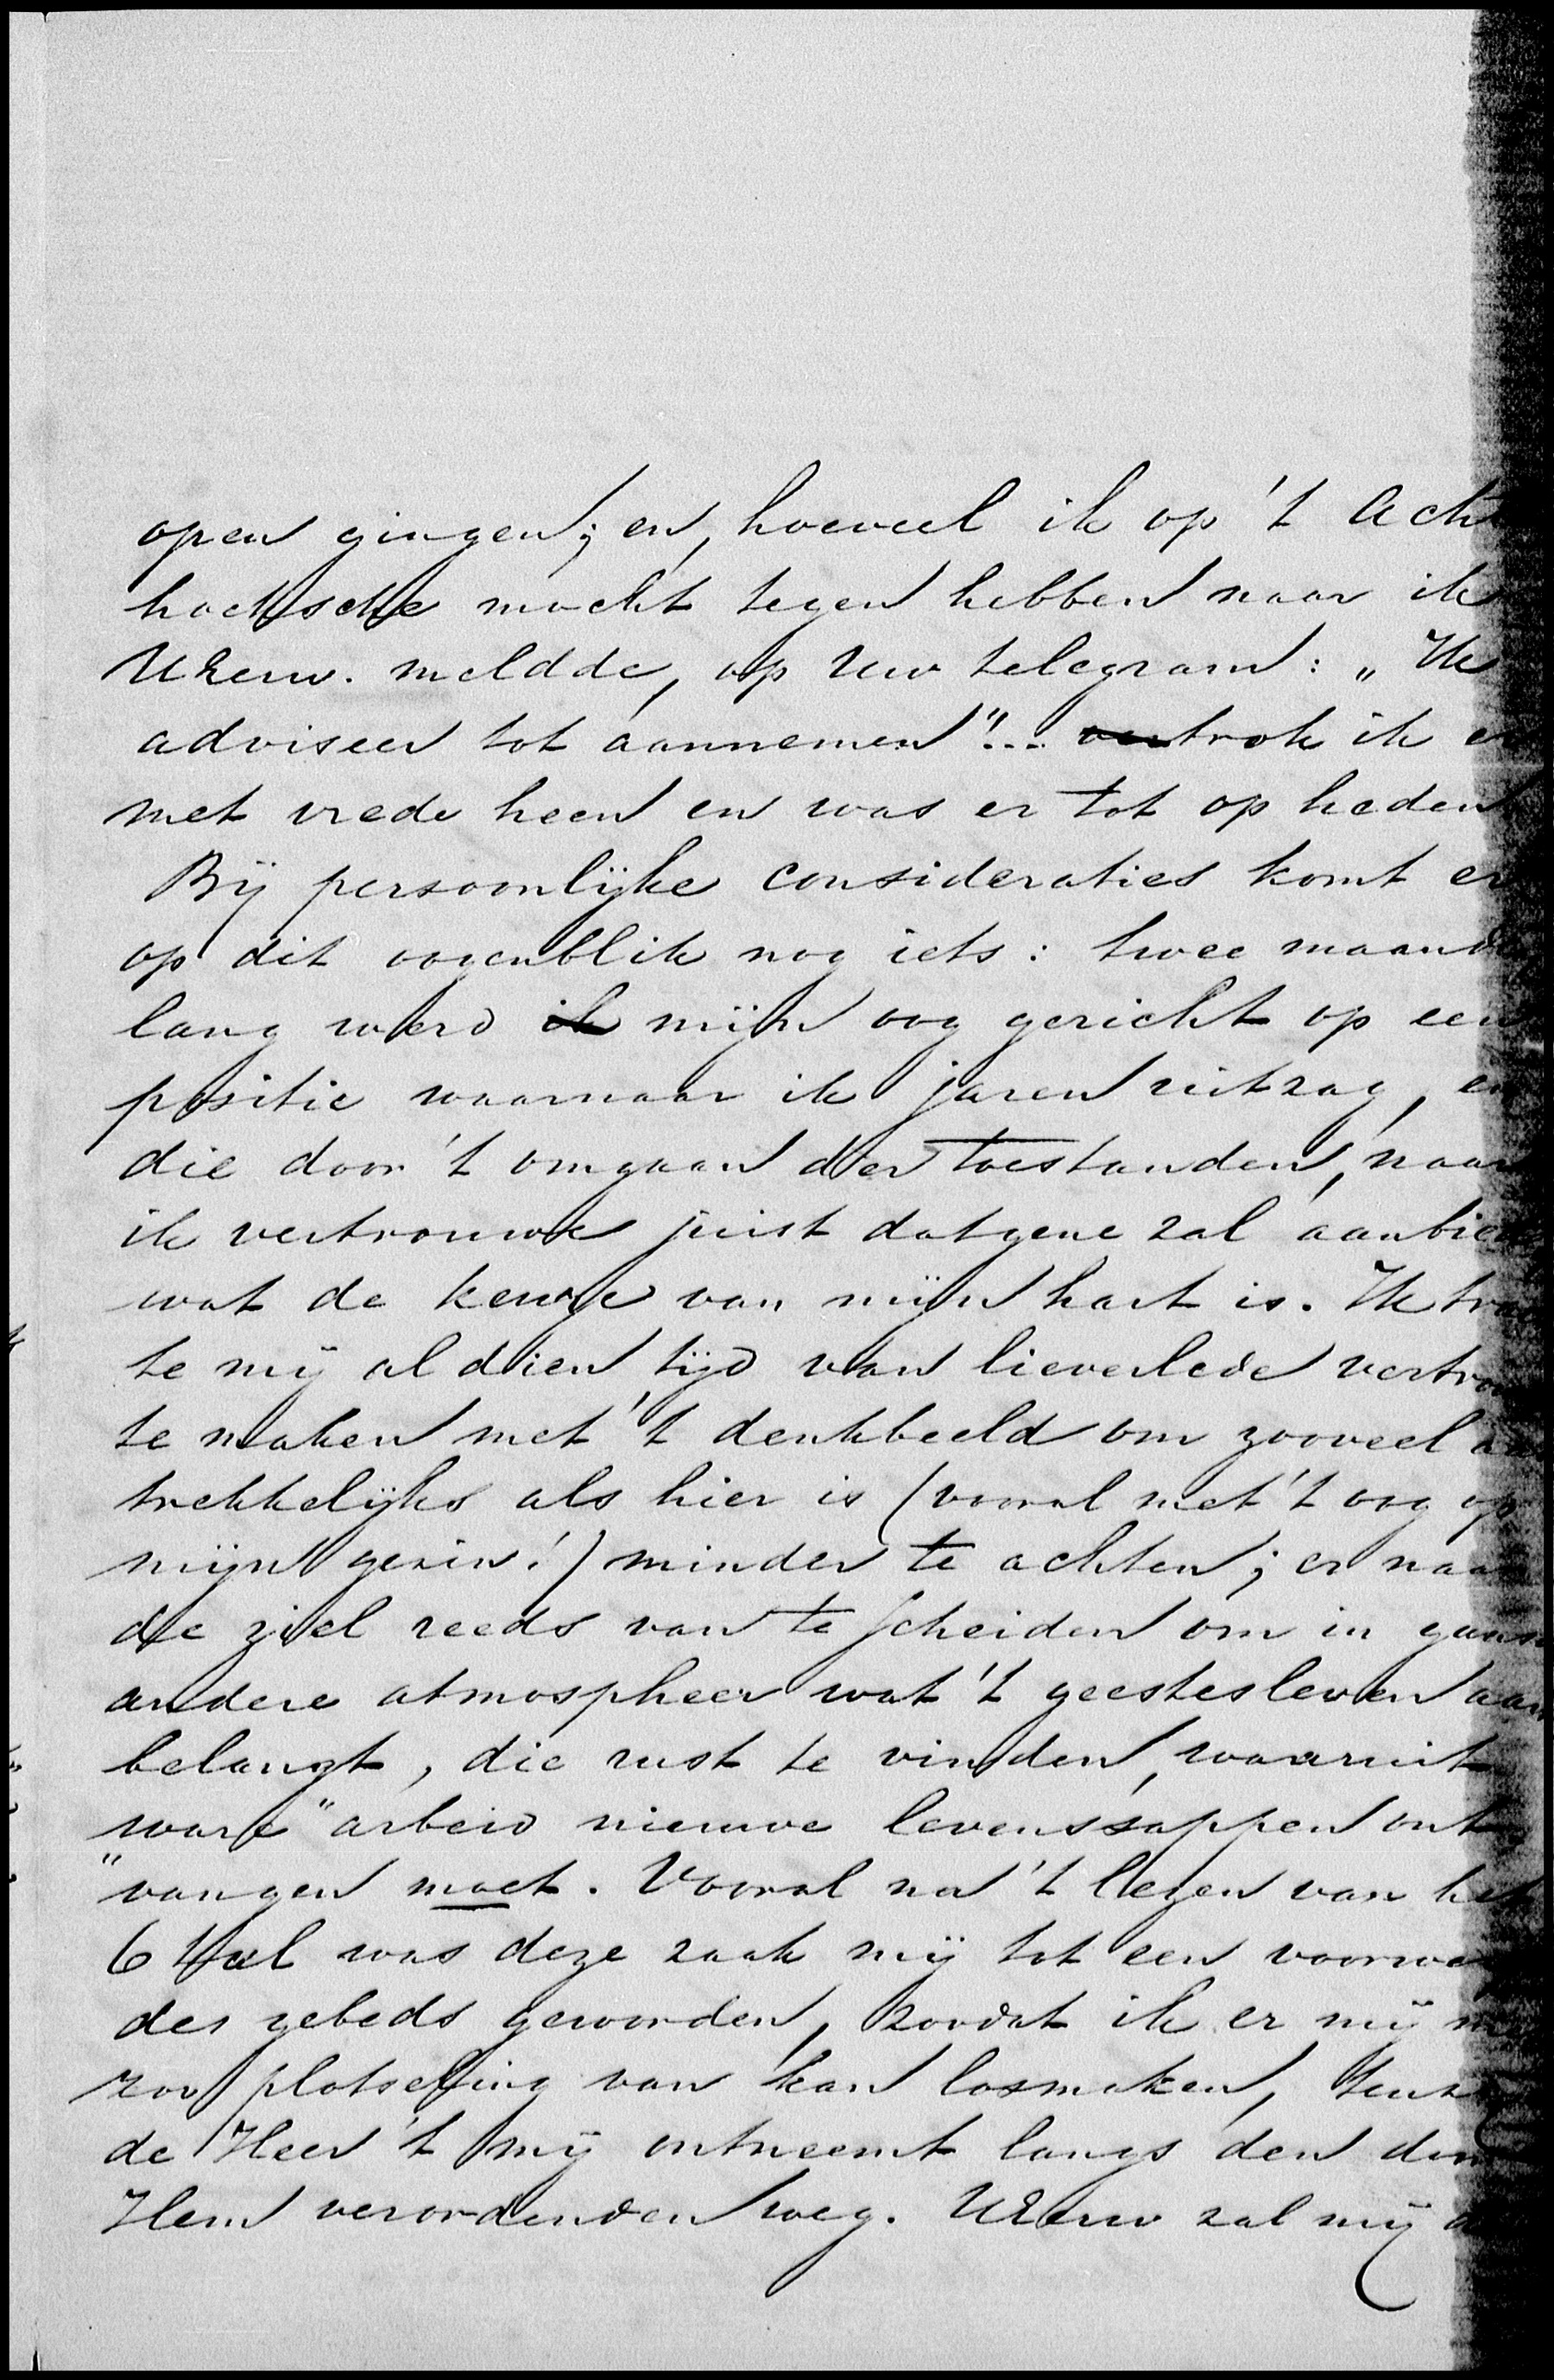 open gingen; en, hoeveel ik op 't Acht
hoeksche mocht tegen hebben naar ik
UEerw. meldde, op Uw telegram: „Ik
adviseer tot aannemen"... vertrok ik er
met vrede heen en was er tot op heden
Bij persoonlijke consideraties komt er
op dit oogenblik nog iets: twee maand
lang werd ik mijn oog gericht op een
positie waarnaar ik jaren uitzag, en
die door 't omgaan der toestanden, naar
ik vertrouwe juist datgene zal aanbied
wat de keuze van mijn hart is. Ik tra
te mij al dien tijd van lieverlede vertrou
te maken met 't denkbeeld om zooveel aan
trekkelijks als hier is (vooral met 't oog op
mijn gezin!) minder te achten; er naar
de ziel reeds van te scheiden om in gansch
andere atmospheer wat 't geestesleven aan
belangt, die rust te vinden, waaruit
ware" arbeid nieuwe levenssappen ont
"vangen moet. Vooral na 't lezen van het
6 tal was deze zaak mij tot een voorwerp
des gebeds geworden, zoodat ik er mij
zoo plotseling van kan losmaken, tenz
de Heer 't mij ontneemt langs den door
Hem verordenden weg. UEerw zal mij